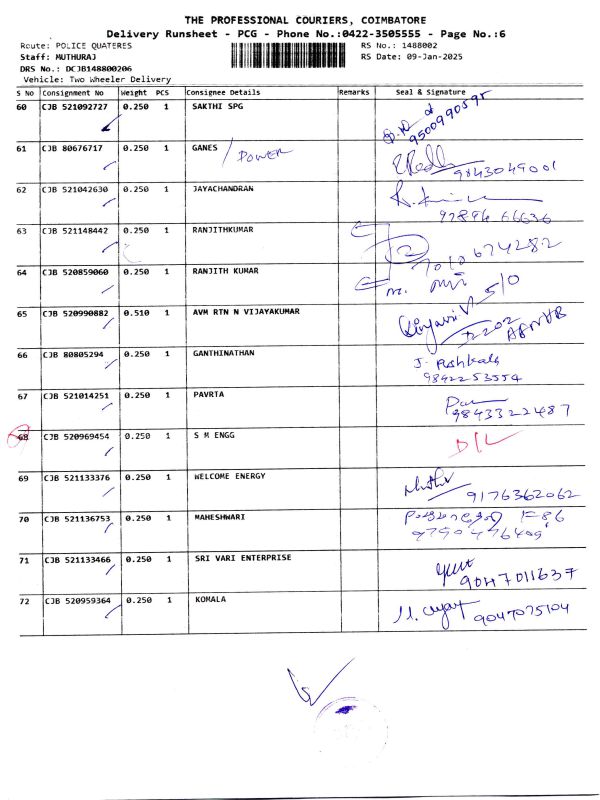 THE PROFESSIONAL COURIERS, COIMBATORE
Delivery Runsheet - PCG - Phone No.:0422-3505555 - Page No.:6
Route: POLICE QUATERES RS No.: 1488002
Staff: MUTHURAJ RS Date: 09-Jan-2025
DRS No.: DCJB148800206
Vehicle: Two Wheeler Delivery
S No Consignment No Weight PCS Consignee Details Remarks Seal & Signature
60 CJB 521092727 0.250 1 SAKTHI SPG
9500990595
61 CJB 80676717 0.250 1 GANES / POWER
9843049001
62 CJB 521042630 0.250 1 JAYACHANDRAN
97894 66636
63 CJB 521148442 0.250 1 RANJITHKUMAR
7010674282
64 CJB 520859060 0.250 1 RANJITH KUMAR
S/O
65 CJB 520990882 0.510 1 AVM RTN N VIJAYAKUMAR
66 CJB 80805294 0.250 1 GANTHINATHAN J. Pushkala
9842253554
67 CJB 521014251 0.250 1 PAVRTA
9843322487
68 CJB 520969454 0.250 1 S M ENGG D/L
69 CJB 521133376 0.250 1 WELCOME ENERGY
9176362062
70 CJB 521136753 0.250 1 MAHESHWARI F-86
9790476409
71 CJB 521133466 0.250 1 SRI VARI ENTERPRISE
9047011637
72 CJB 520959364 0.250 1 KOMALA
9047075104